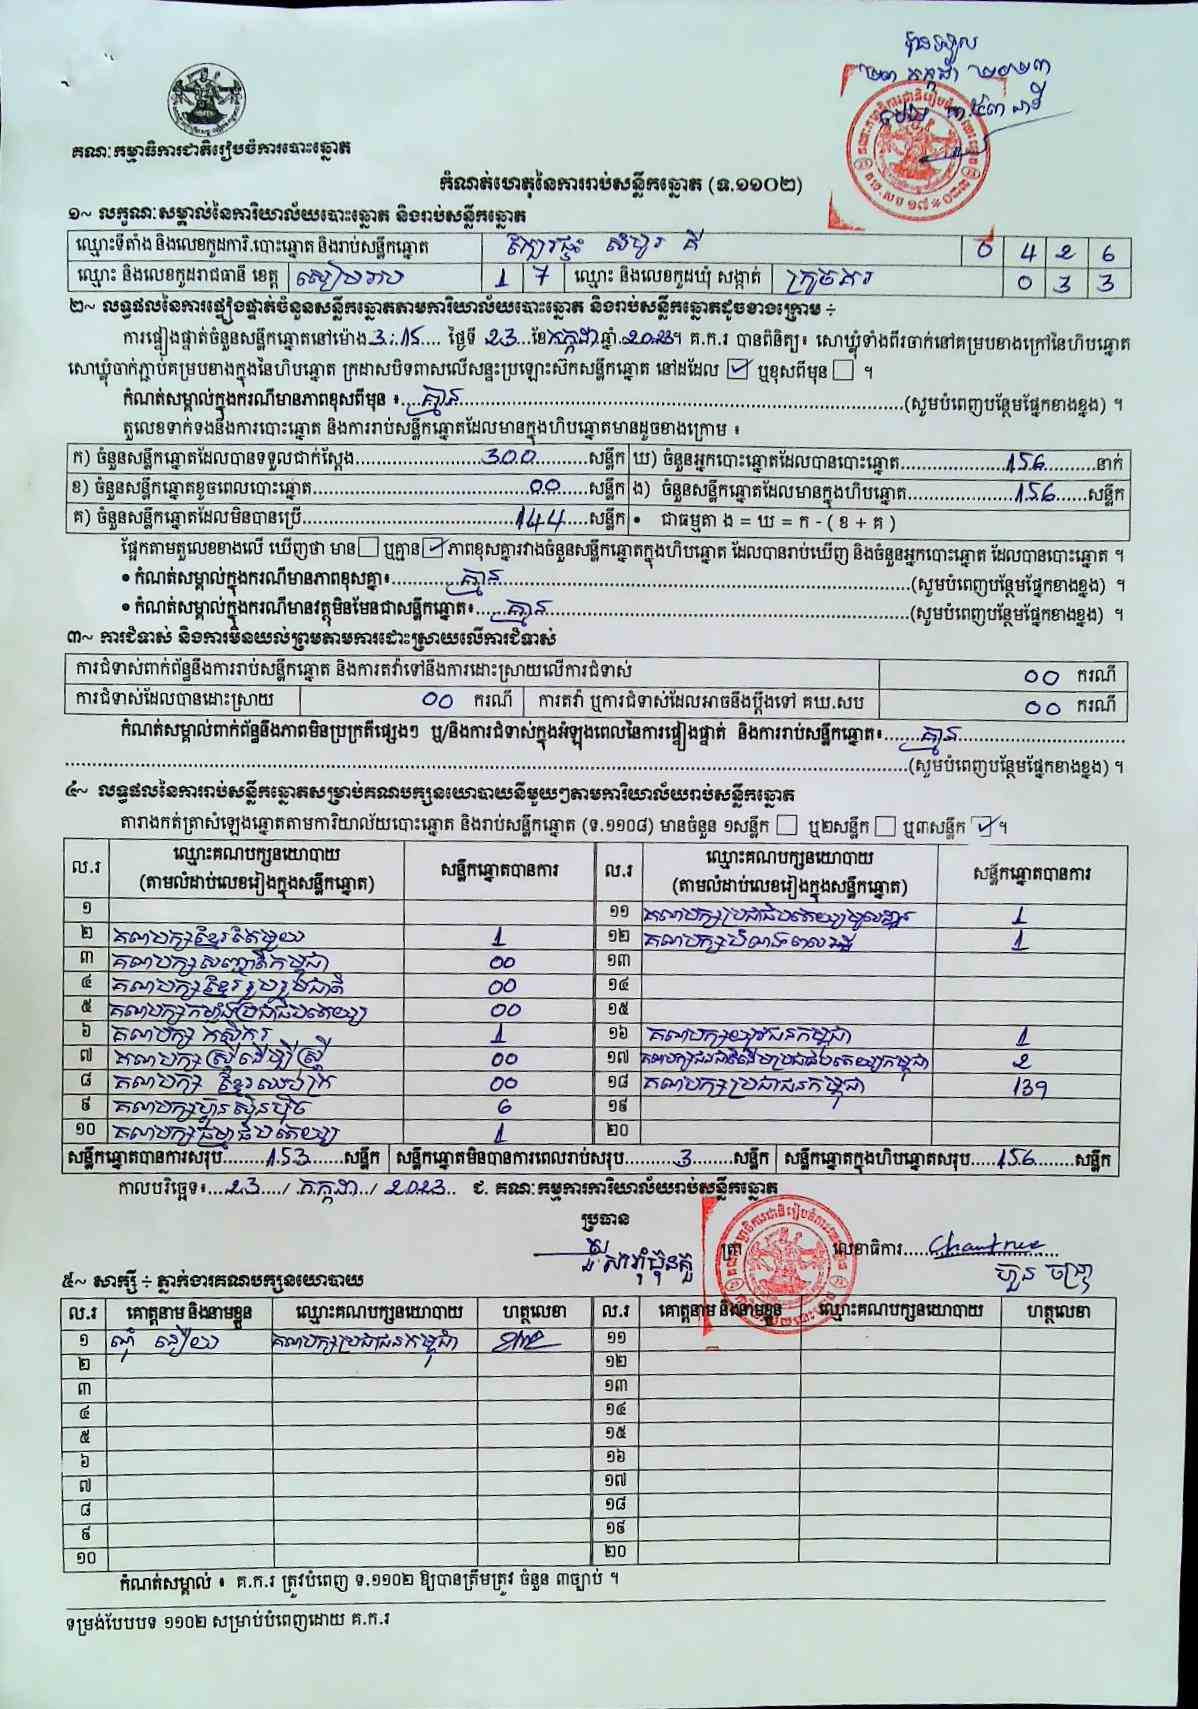 ២៣ កក្កដា ២០២៣
គណៈកម្មាធិការជាតិរៀបចំការបោះឆ្នោត
កំណត់ហេតុនៃការរាប់សន្លឹកឆ្នោត (ទ.១១០២)
១~ លក្ខណៈសម្គាល់នៃការិយាល័យបោះឆ្នោត និងរាប់សន្លឹកឆ្នោត
ឈ្មោះទីតាំង និងលេខកូដការិ.បោះឆ្នោត និងរាប់សន្លឹកឆ្នោត 0 4 2 6
ឈ្មោះ និងលេខកូដរាជធានី ខេត្ត សៀមរាប 1 7 ឈ្មោះ និងលេខកូដឃុំ សង្កាត់ 0 3 3
២~ លទ្ធផលនៃការផ្ទៀងផ្ទាត់ចំនួនសន្លឹកឆ្នោតតាមការិយាល័យបោះឆ្នោត និងរាប់សន្លឹកឆ្នោតដូចខាងក្រោម ÷
ការផ្ទៀងផ្ទាត់ចំនួនសន្លឹកឆ្នោតនៅម៉ោង 3:15 ថ្ងៃទី 23 ខែ កក្កដា ឆ្នាំ 2023 ។ គ.ក.រ បានពិនិត្យ៖ សោឃ្លុំទាំងពីរចាក់នៅគម្របខាងក្រៅនៃហិបឆ្នោត
សោឃ្លុំចាក់ភ្ជាប់គម្របខាងក្នុងនៃហិបឆ្នោត ក្រដាសបិទពាសលើសន្ទះប្រឡោះស៊កសន្លឹកឆ្នោត នៅដដែល ☑ ឬខុសពីមុន ☐ ។
កំណត់សម្គាល់ក្នុងករណីមានភាពខុសពីមុន ៖ គ្មាន (សូមបំពេញបន្ថែមផ្នែកខាងខ្នង) ។
តួលេខទាក់ទងនឹងការបោះឆ្នោត និងការរាប់សន្លឹកឆ្នោតដែលមានក្នុងហិបឆ្នោតមានដូចខាងក្រោម ៖
ក) ចំនួនសន្លឹកឆ្នោតដែលបានទទួលជាក់ស្តែង 300 សន្លឹក ឃ) ចំនួនអ្នកបោះឆ្នោតដែលបានបោះឆ្នោត 156 នាក់
ខ) ចំនួនសន្លឹកឆ្នោតខូចពេលបោះឆ្នោត 00 សន្លឹក ង) ចំនួនសន្លឹកឆ្នោតដែលមានក្នុងហិបឆ្នោត 156 សន្លឹក
គ) ចំនួនសន្លឹកឆ្នោតដែលមិនបានប្រើ 144 សន្លឹក • ជាធម្មតា ង = ឃ = ក - ( ខ + គ )
ផ្អែកតាមតួលេខខាងលើ ឃើញថា មាន ☐ ឬគ្មាន ☑ ភាពខុសគ្នារវាងចំនួនសន្លឹកឆ្នោតក្នុងហិបឆ្នោត ដែលបានរាប់ឃើញ និងចំនួនអ្នកបោះឆ្នោត ដែលបានបោះឆ្នោត ។
• កំណត់សម្គាល់ក្នុងករណីមានភាពខុសគ្នា៖ គ្មាន (សូមបំពេញបន្ថែមផ្នែកខាងខ្នង) ។
• កំណត់សម្គាល់ក្នុងករណីមានវត្ថុមិនមែនជាសន្លឹកឆ្នោត៖ គ្មាន (សូមបំពេញបន្ថែមផ្នែកខាងខ្នង) ។
៣~ ការជំទាស់ និងការមិនយល់ព្រមតាមការដោះស្រាយលើការជំទាស់
ការជំទាស់ពាក់ព័ន្ធនឹងការរាប់សន្លឹកឆ្នោត និងការតវ៉ាទៅនឹងការដោះស្រាយលើការជំទាស់ 00 ករណី
ការជំទាស់ដែលបានដោះស្រាយ 00 ករណី ការតវ៉ា ឬការជំទាស់ដែលអាចនឹងប្តឹងទៅ គឃ.សប 00 ករណី
កំណត់សម្គាល់ពាក់ព័ន្ធនឹងភាពមិនប្រក្រតីផ្សេងៗ ឬ/និងការជំទាស់ក្នុងអំឡុងពេលនៃការផ្ទៀងផ្ទាត់ និងការរាប់សន្លឹកឆ្នោត៖ គ្មាន
(សូមបំពេញបន្ថែមផ្នែកខាងខ្នង) ។
៤~ លទ្ធផលនៃការរាប់សន្លឹកឆ្នោតសម្រាប់គណបក្សនយោបាយនីមួយៗតាមការិយាល័យរាប់សន្លឹកឆ្នោត
តារាងកត់ត្រាសំឡេងឆ្នោតតាមការិយាល័យបោះឆ្នោត និងរាប់សន្លឹកឆ្នោត (ទ.១១០៨) មានចំនួន ១សន្លឹក ☐ ឬ២សន្លឹក ☐ ឬ៣សន្លឹក ☑ ។
ល.រ ឈ្មោះគណបក្សនយោបាយ (តាមលំដាប់លេខរៀងក្នុងសន្លឹកឆ្នោត) សន្លឹកឆ្នោតបានការ ល.រ ឈ្មោះគណបក្សនយោបាយ (តាមលំដាប់លេខរៀងក្នុងសន្លឹកឆ្នោត) សន្លឹកឆ្នោតបានការ
១ ១១ គណបក្សប្រជាធិបតេយ្យមូលដ្ឋាន 1
២ គណបក្សខ្មែរតែមួយ 1 ១២ គណបក្សបំណងពលរដ្ឋ 1
៣ គណបក្សសញ្ជាតិកម្ពុជា 00 ១៣
៤ គណបក្សខ្មែររួបរួមជាតិ 00 ១៤
៥ គណបក្សកម្លាំងប្រជាធិបតេយ្យ 00 ១៥
៦ គណបក្ស កសិករ 1 ១៦ គណបក្សយុវជនកម្ពុជា 1
៧ គណបក្សស្ត្រីដើម្បីស្ត្រី 00 ១៧ គណបក្សជនជាតិដើមប្រជាធិបតេយ្យកម្ពុជា 2
៨ គណបក្ស ខ្មែរឈប់ក្រ 00 ១៨ គណបក្សប្រជាជនកម្ពុជា 139
៩ គណបក្សហ៊្វុនស៊ិនប៉ិច 6 ១៩
១០ គណបក្សធម្មាធិបតេយ្យ 1 ២០
សន្លឹកឆ្នោតបានការសរុប 153 សន្លឹក សន្លឹកឆ្នោតមិនបានការពេលរាប់សរុប 3 សន្លឹក សន្លឹកឆ្នោតក្នុងហិបឆ្នោតសរុប 156 សន្លឹក
កាលបរិច្ឆេទ៖ 23 / កក្កដា / 2023 ជ. គណៈកម្មការការិយាល័យរាប់សន្លឹកឆ្នោត
ប្រធាន
ត្រា លេខាធិការ
៥~ សាក្សី ÷ ភ្នាក់ងារគណបក្សនយោបាយ
ល.រ គោត្តនាម និងនាមខ្លួន ឈ្មោះគណបក្សនយោបាយ ហត្ថលេខា ល.រ គោត្តនាម និងនាមខ្លួន ឈ្មោះគណបក្សនយោបាយ ហត្ថលេខា
១ គណបក្សប្រជាជនកម្ពុជា ១១
២ ១២
៣ ១៣
៤ ១៤
៥ ១៥
៦ ១៦
៧ ១៧
៨ ១៨
៩ ១៩
១០ ២០
កំណត់សម្គាល់ ៖ គ.ក.រ ត្រូវបំពេញ ទ.១១០២ ឱ្យបានត្រឹមត្រូវ ចំនួន ៣ច្បាប់ ។
ទម្រង់បែបបទ ១១០២ សម្រាប់បំពេញដោយ គ.ក.រ